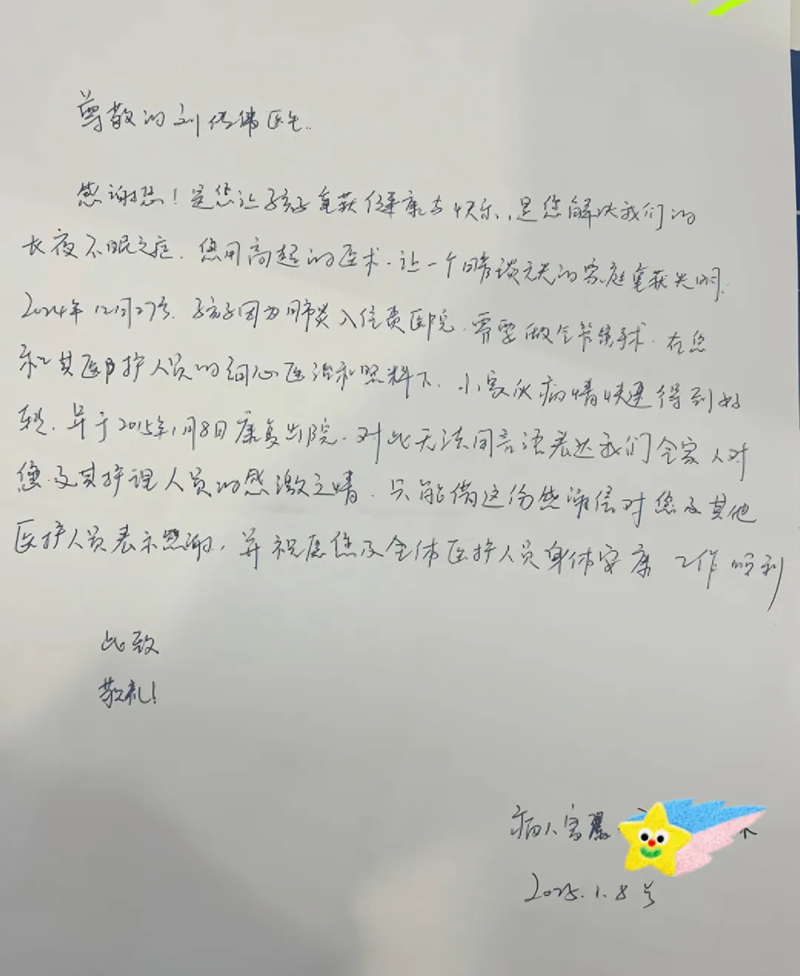 尊敬的刘传伟医生..
感谢您！是您让孩子重获健康与快乐，是您解决我们的
长夜不眠之症．您用高超的医术．让一个暗淡无光的家庭重获光明．
2024年12月27号．孩子因为肺炎入住贵医院．需要做全麻手术．在您
和其医护人员的细心医治和照料下．小家伙病情快速得到好
转．并于2015年1月8日康复出院．对此无法用言语表达我们全家人对
您及其护理人员的感激之情．只能借这份感谢信对您及其他
医护人员表示感谢，并祝愿您及全体医护人员身体安康 工作顺利
此致
敬礼！
病人家属
2025.1.8号